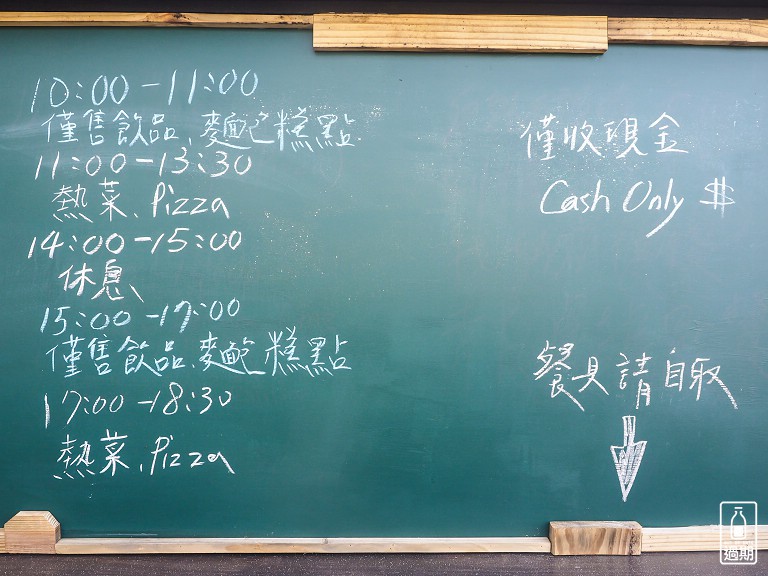 10:00-11:00
僅售飲品、麵包糕點
11:00-13:30
熱菜、Pizza
14:00-15:00
休息、
15:00-17:00
僅售飲品、麵包糕點
17:00-18:30
熱菜、Pizza
僅收現金
Cash Only $
餐具請自取
過期